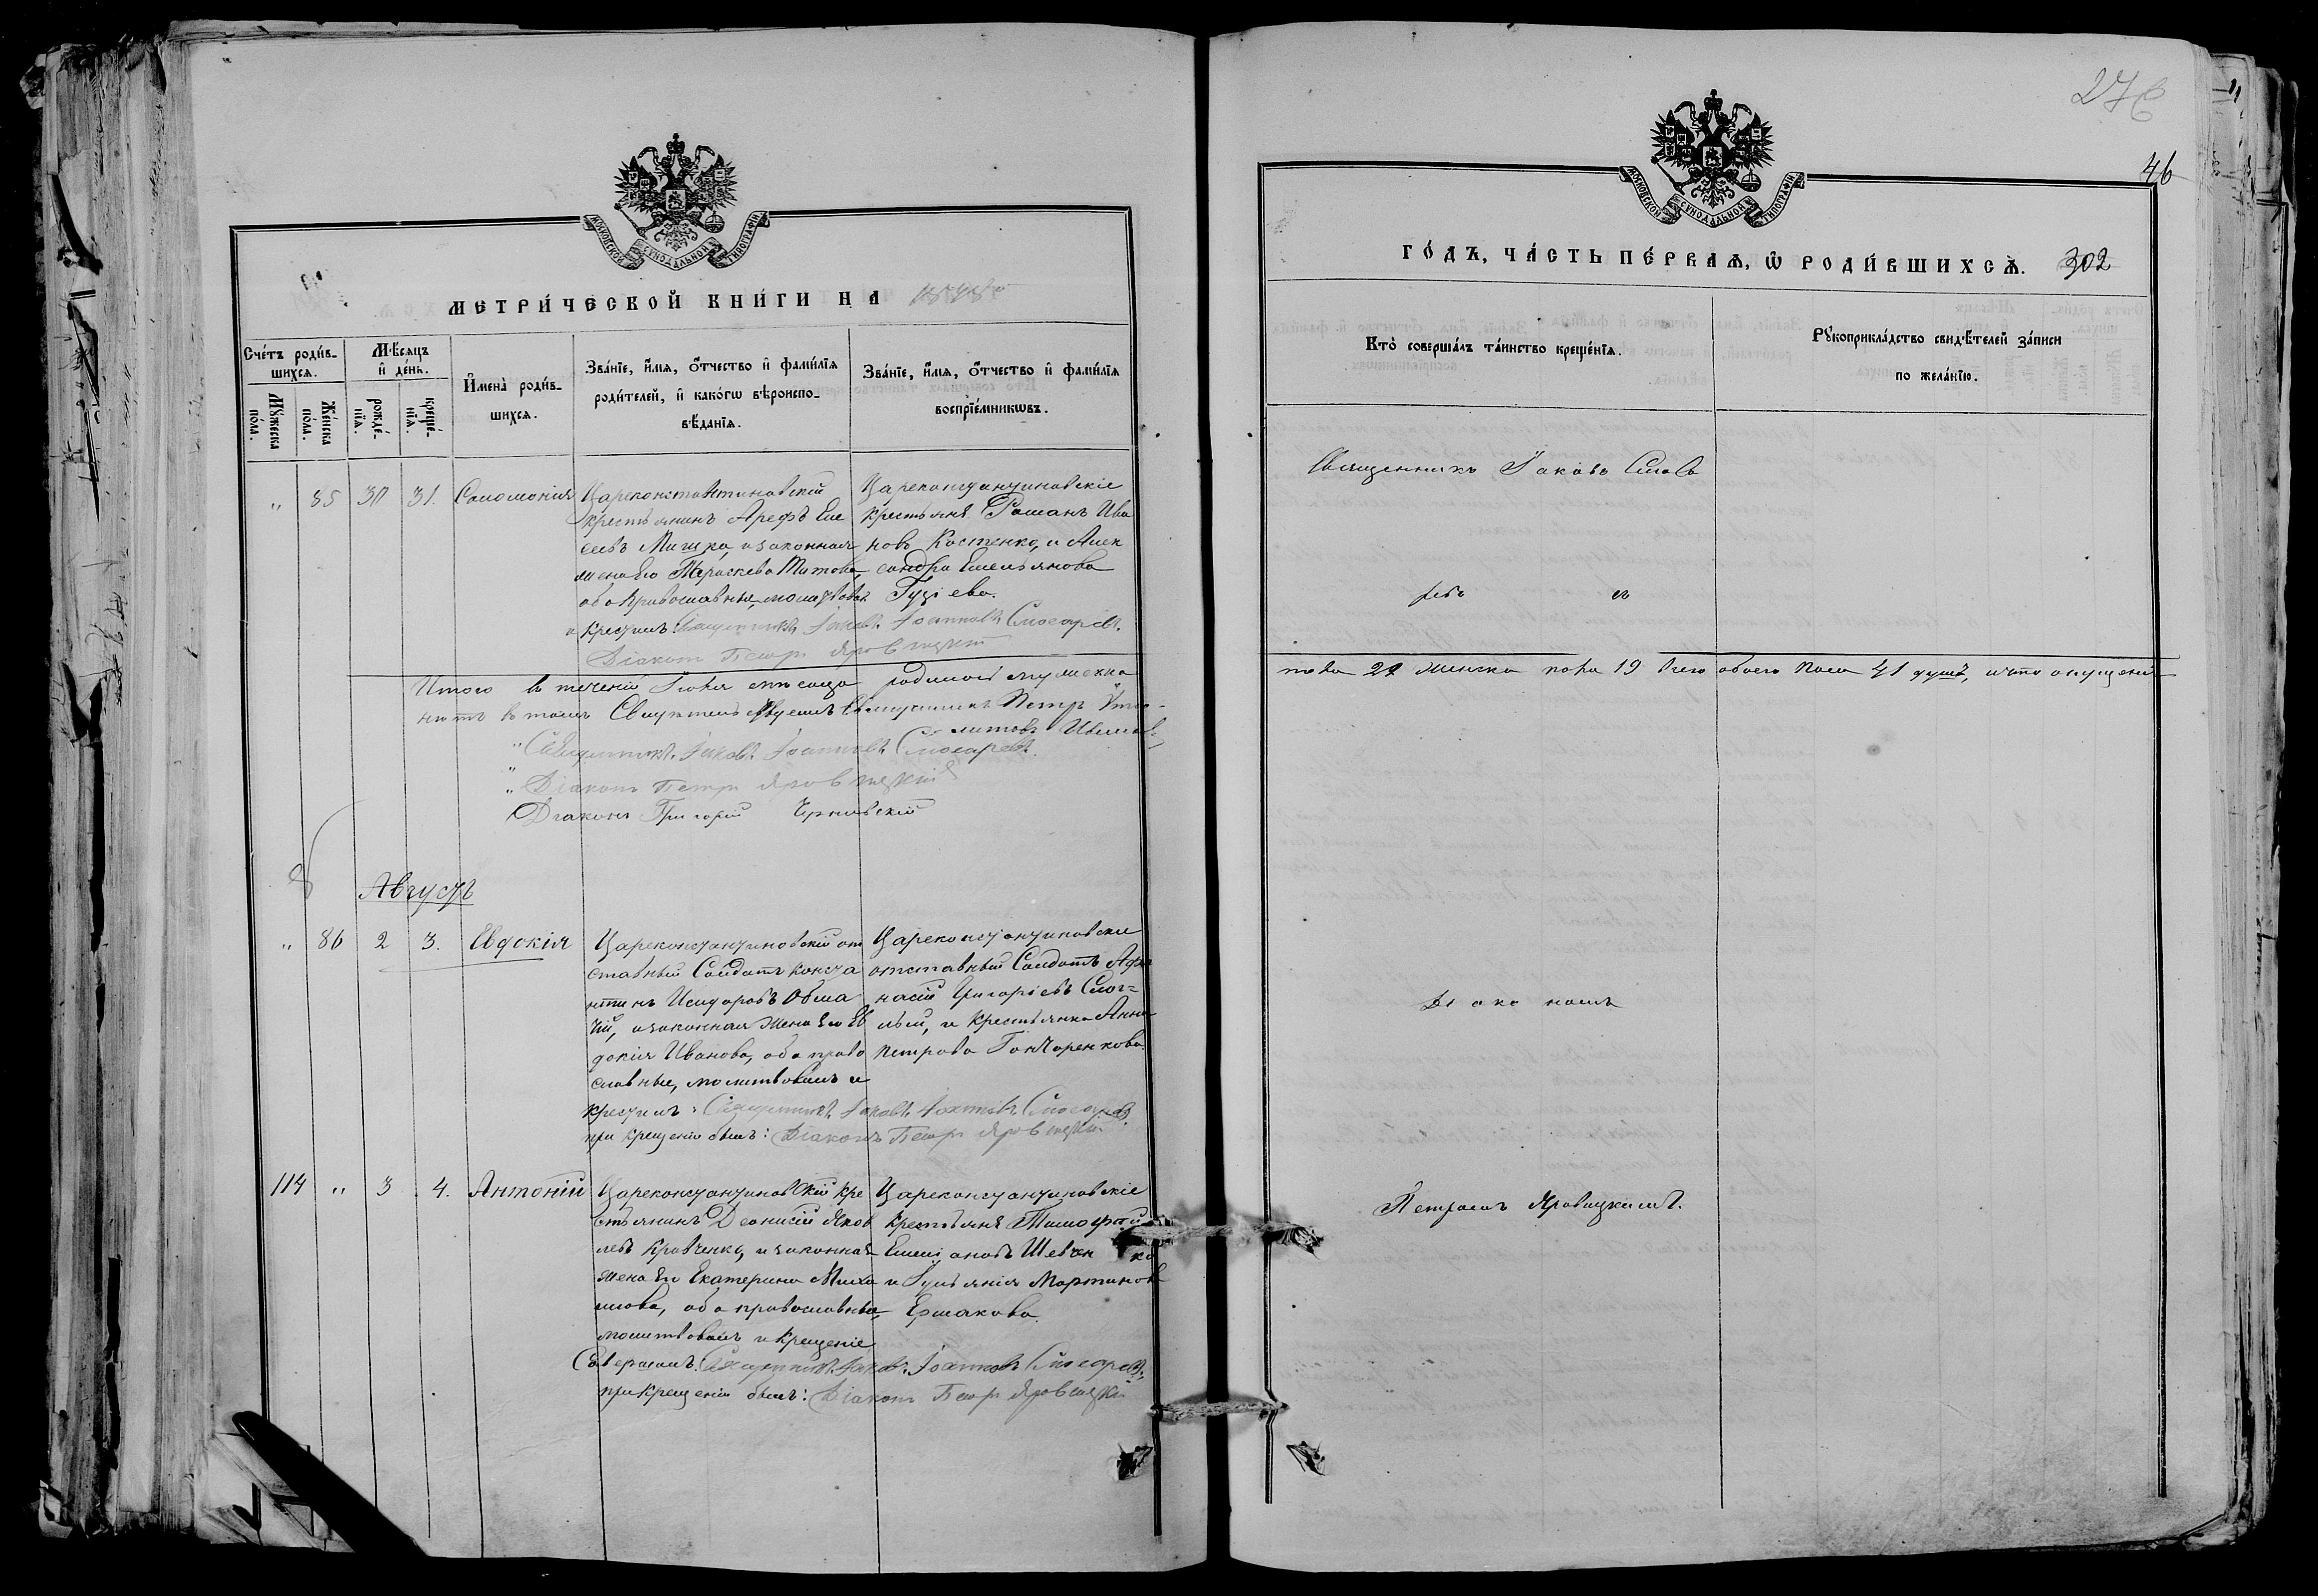 276
46
МОСКОВСКОЙ СѴНОДАЛЬНОЙ ТИПОГРАФІИ
МЕТРИ́ЧЕСКОЙ КНИ́ГИ НА
Сче́тъ роди́в-
шихсѧ.
Мꙋ́жеска
по́ла.
Же́нска
по́ла.
Мѣ́сѧцъ
и҆ де́нь.
рожде́-
нїѧ.
креще́-
нїѧ.
И҆мена̀ роди́в-
шихсѧ.
Зва́нїе, и҆́мѧ, ѻ҆́тчество и҆ фами́лїѧ
роди́телей, и҆ како́гѡ вѣроиспо-
вѣ́данїѧ.
Зва́нїе, и҆́мѧ, ѻ҆́тчество и҆ фами́лїѧ
воспрїе́мникѡвъ.
„ 85 30 31. Соломонія
Цареконстантиновскій
крестьянинъ Арефъ Ели
сѣевъ законная
жена его Параскева Титова,
оба православные, молитвовалъ
и крестилъ: Священникъ Іаковъ Іоанновъ Смосаревъ.
Діаконъ Петръ Яровицкій
Цареконстантиновскіе
крестьяне Романъ Ива
новъ Костенко, и Алек
сандра Емельянова
Гузіева.
Итого въ теченіи Іюля мѣсяца родилось мужеска
нѣтъ въ томъ Свидѣтельствуемъ Священникъ Петръ
Священникъ Іаковъ Іоанновъ Смосаревъ.
„ Діаконъ Петръ Яровицкій
Діаконъ Григорій Чернявскій
Августъ
„ 86 2 3. Евдокія
Цареконстантиновскій от
ставный Солдатъ Конста
нтинъ Исидоровъ
законная жена его Ев
докія Иванова, оба право
славные, молитвовалъ и
крестилъ: Священникъ Іаковъ Іоанновъ Смосаревъ
при крещеніи былъ: Діаконъ Петръ Яровицкій
Цареконстантиновскіе
отставный Солдатъ Афа
насій Григоріевъ
и крестьянка Анна
Петрова Гончаренкова.
114 „ 3 4. Антоній
Цареконстантиновскій кре
стьянинъ Діонисій Яков
левъ Кравченко, и законная
жена его Екатерина Миха
илова, оба православные,
молитвовалъ и крещеніе
Совершалъ: Священникъ Іаковъ Іоанновъ Смосаревъ,
при крещеніи былъ: Діаконъ Петръ Яровицкій
Цареконстантиновскіе
крестьяне Тимофей
Емеліановъ Шевченко
и Іуліанія Мартинов
Ермакова.
МОСКОВСКОЙ СѴНОДАЛЬНОЙ ТИПОГРАФІИ
ГО́ДЪ, ЧА́СТЬ ПЕ́РВАѦ, Ѡ҆ РОДИ́ВШИХСѦ. 302
Кто̀ соверша́лъ та́инство креще́нїѧ.
Рꙋкоприкла́дство свидѣ́телей за́писи
по жела́нїю.
Священникъ Іаковъ Смоса
ревъ съ
пола 22 женска пола 19 всего обоего пола 41 душа, и что опущенія
Діакономъ
Петромъ Яровицкимъ.